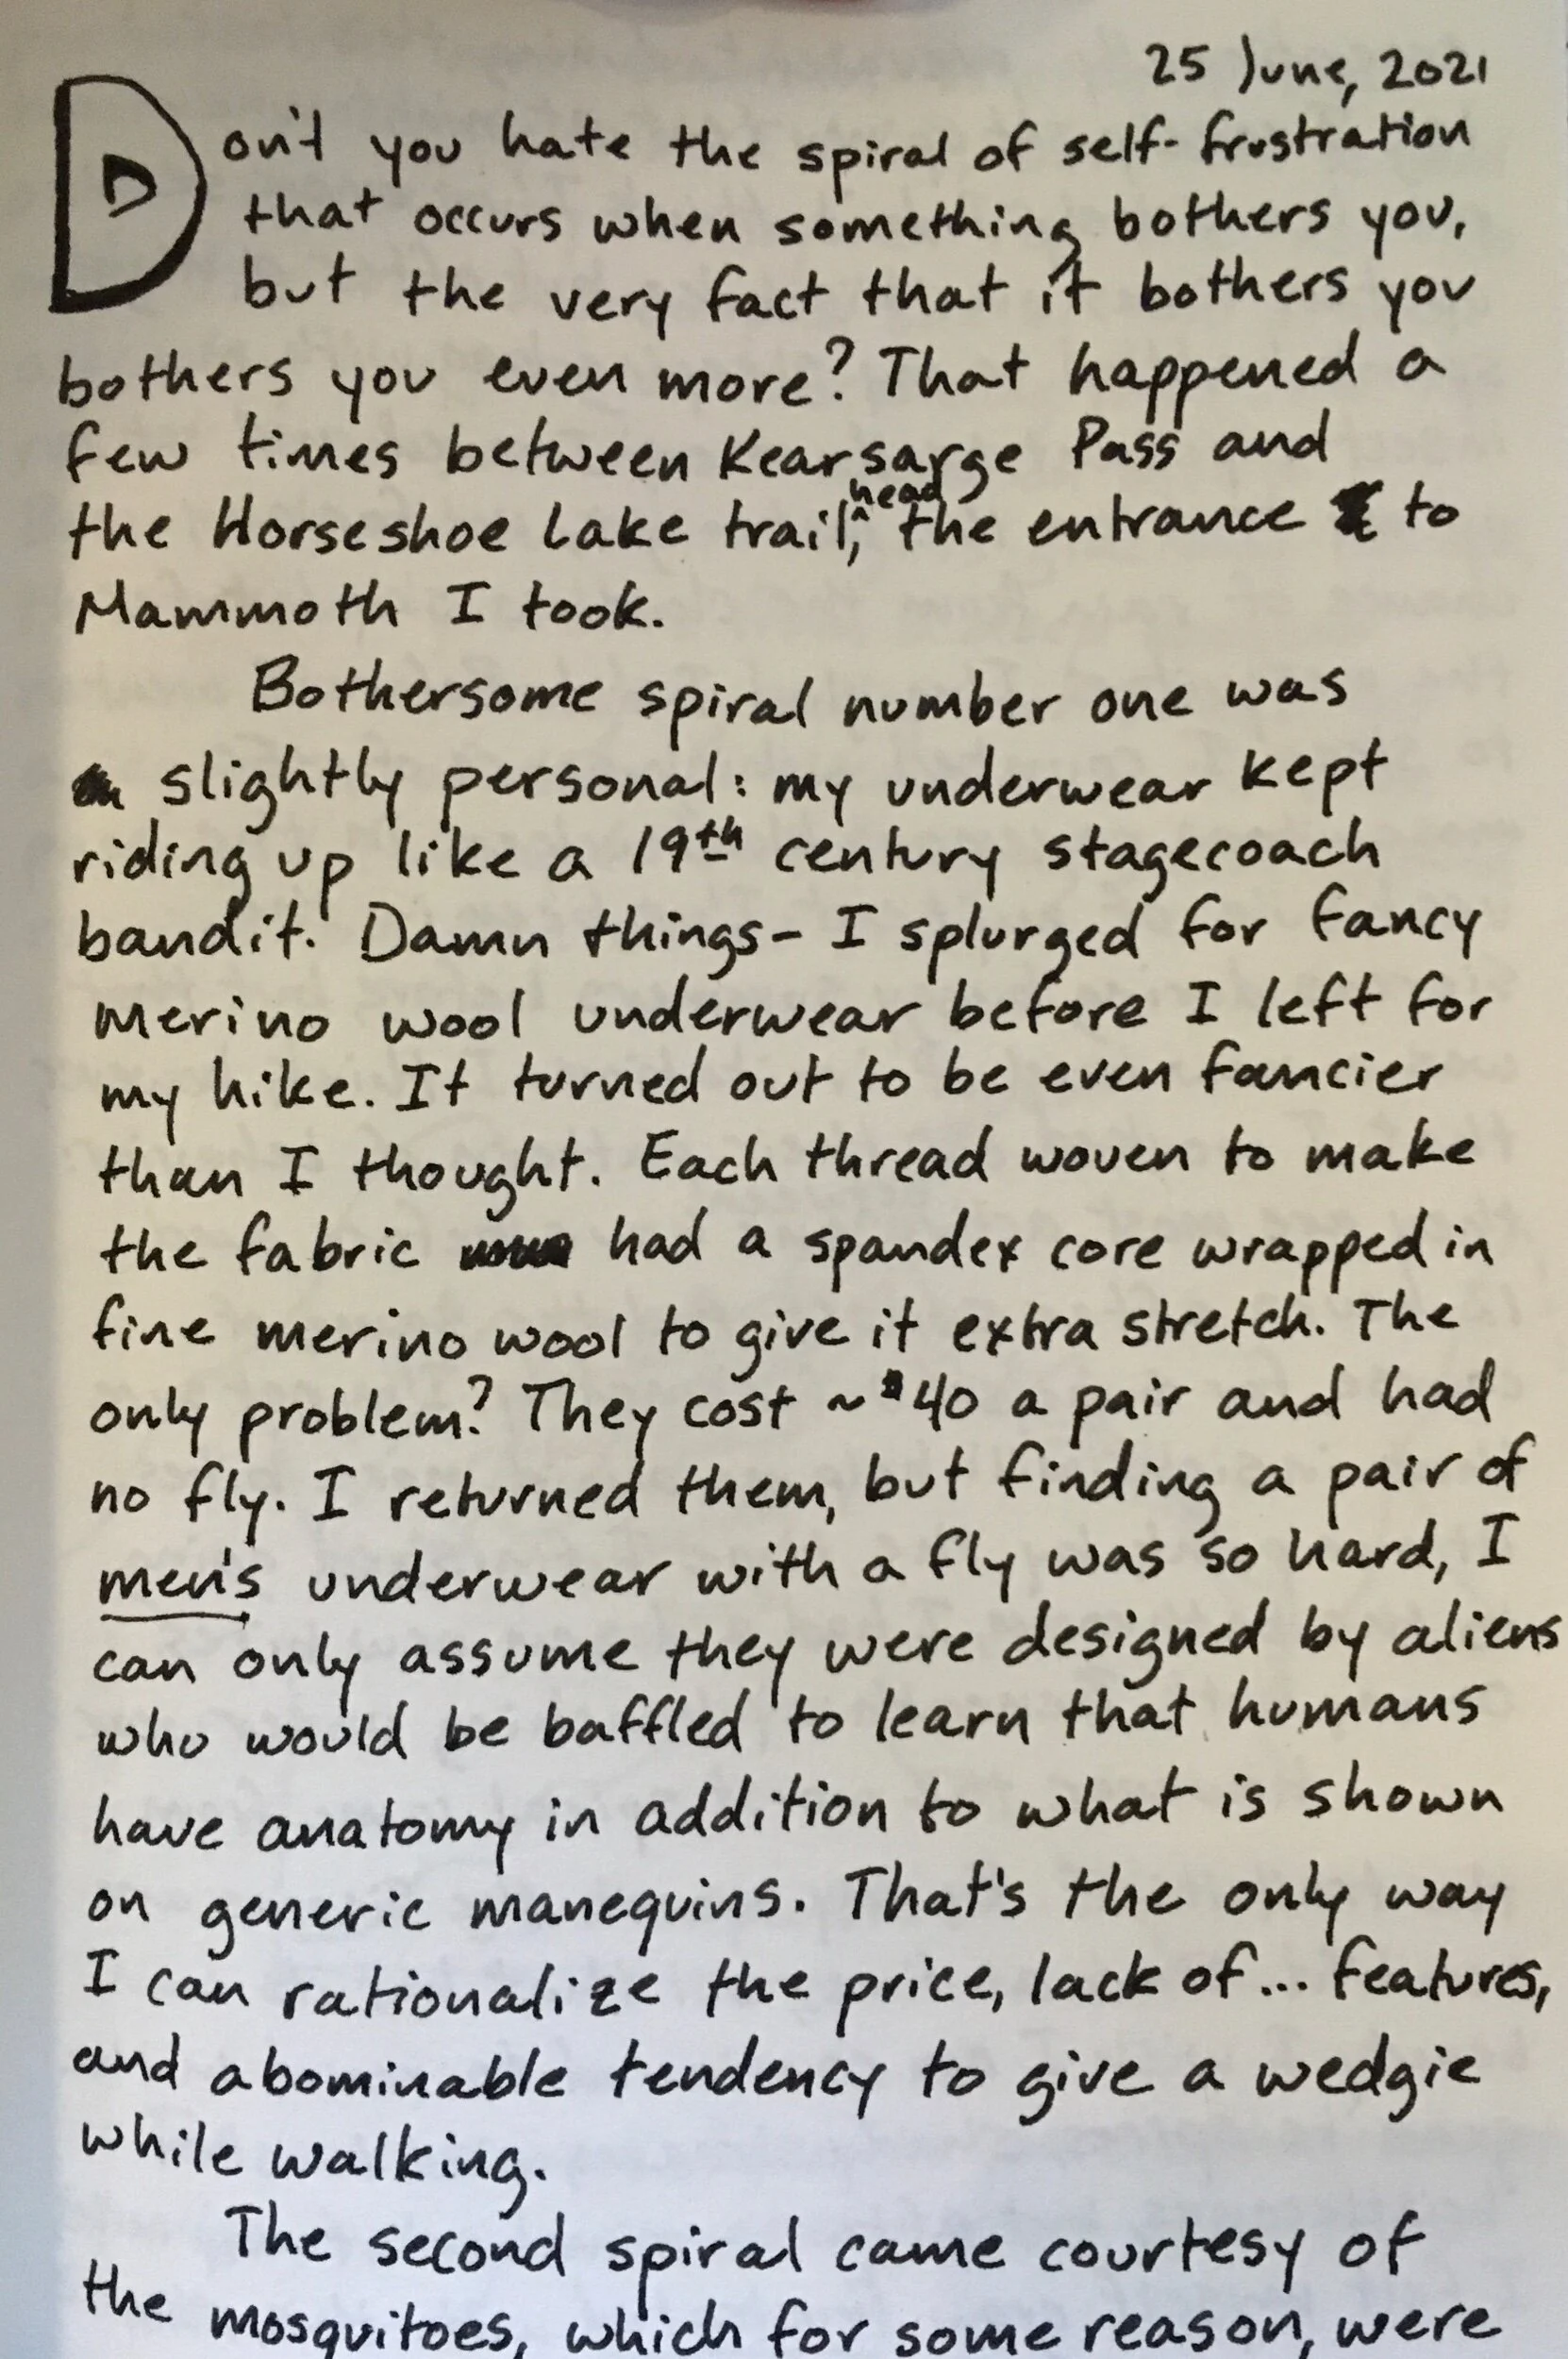 25 June, 2021
Don't you hate the spiral of self-frustration
that occurs when something bothers you,
but the very fact that it bothers you
bothers you even more? That happened a
few times between Kearsarge Pass and
the Horseshoe Lake trailhead, the entrance to
Mammoth I took.
Bothersome spiral number one was
slightly personal: my underwear kept
riding up like a 19th century stagecoach
bandit. Damn things- I splurged for fancy
merino wool underwear before I left for
my hike. It turned out to be even fancier
than I thought. Each thread woven to make
the fabric had a spandex core wrapped in
fine merino wool to give it extra stretch. The
only problem? They cost ~$40 a pair and had
no fly. I returned them, but finding a pair of
men's underwear with a fly was so hard, I
can only assume they were designed by aliens
who would be baffled to learn that humans
have anatomy in addition to what is shown
on generic manequins. That's the only way
I can rationalize the price, lack of... features,
and abominable tendency to give a wedgie
while walking.
The second spiral came courtesy of
the mosquitoes, which for some reason, were